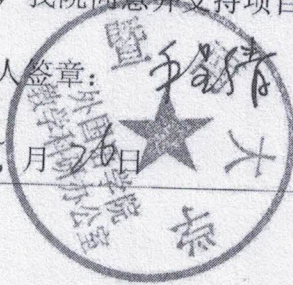 我院同意并支持项目
人签章：
月26日
暨南大学
外国语学院
教学科研办公室